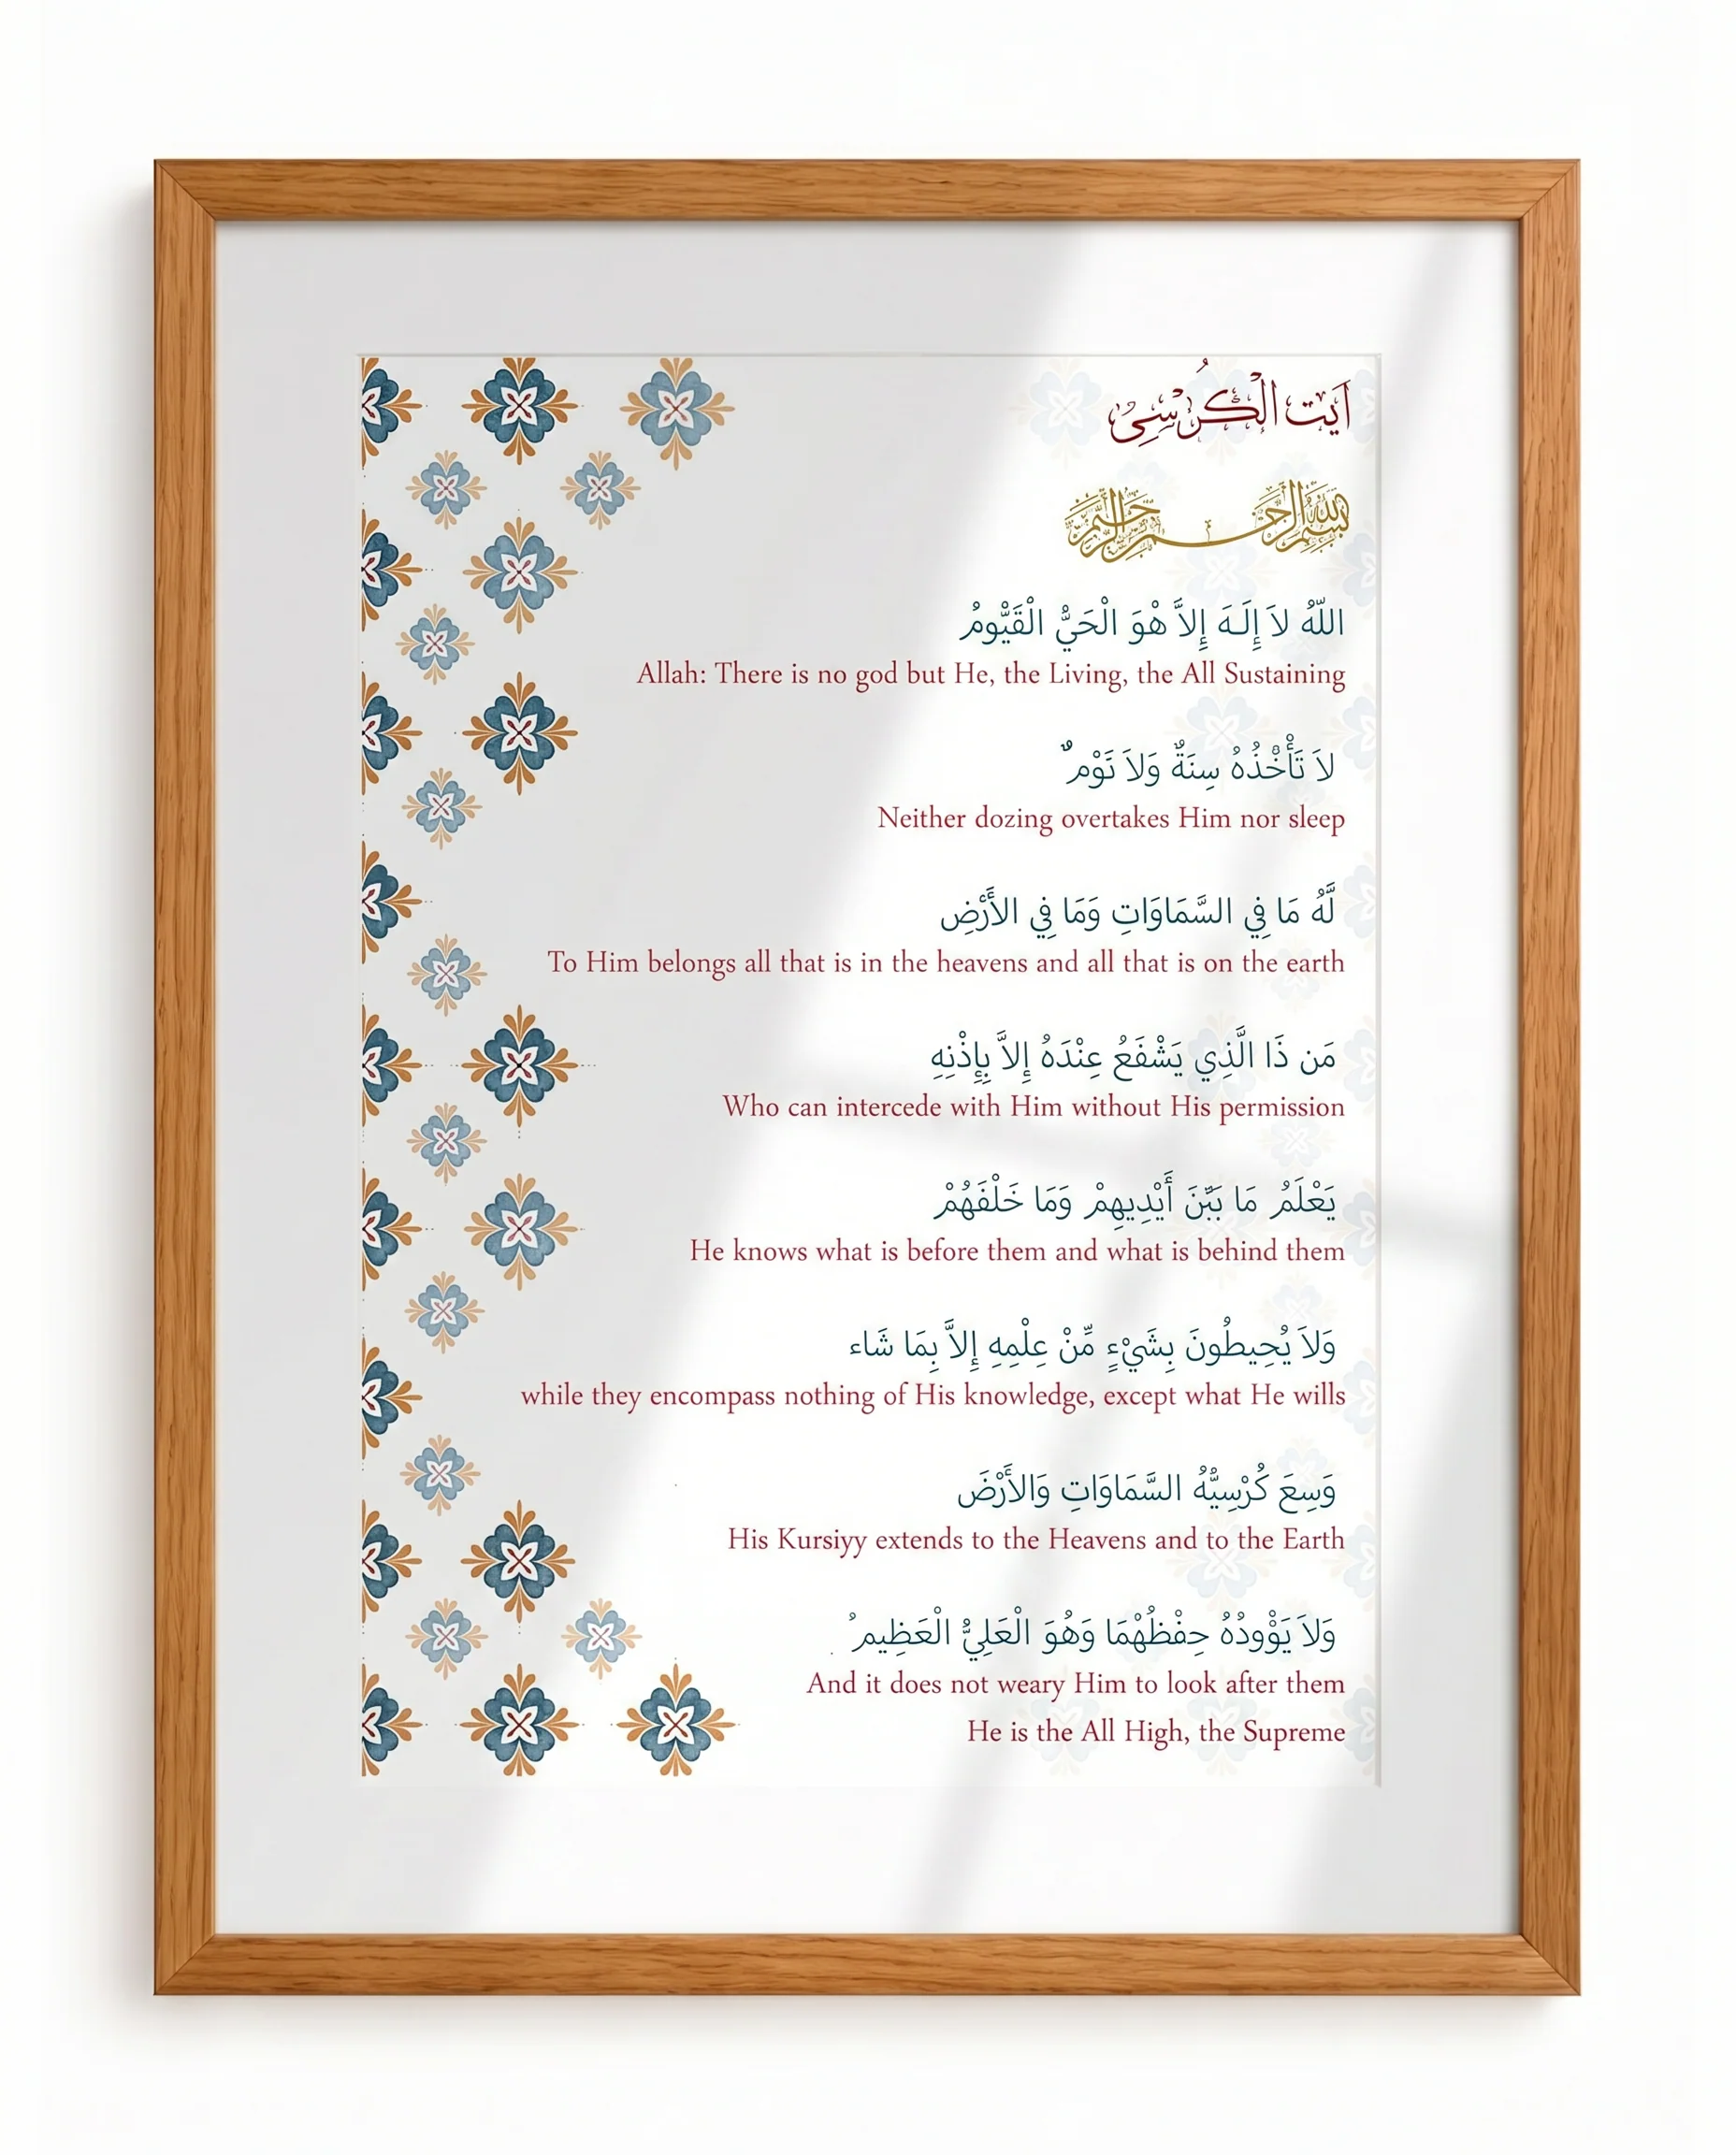 اٰيَت الْكُرْسِىُ
بسم الله الرحمن الرحيم
اللّهُ لاَ إِلَـهَ إِلاَّ هْوَ الْحَيُّ الْقَيُّومُ
Allah: There is no god but He, the Living, the All Sustaining
لاَ تَأْخُذُهُ سِنَةٌ وَلاَ نَوْمٌ
Neither dozing overtakes Him nor sleep
لَّهُ مَا فِي السَّمَاوَاتِ وَمَا فِي الأَرْضِ
To Him belongs all that is in the heavens and all that is on the earth
مَن ذَا الَّذِي يَشْفَعُ عِنْدَهُ إِلاَّ بِإِذْنِهِ
Who can intercede with Him without His permission
يَعْلَمُ مَا بَيْنَ أَيْدِيهِمْ وَمَا خَلْفَهُمْ
He knows what is before them and what is behind them
وَلاَ يُحِيطُونَ بِشَيْءٍ مِّنْ عِلْمِهِ إِلاَّ بِمَا شَاء
while they encompass nothing of His knowledge, except what He wills
وَسِعَ كُرْسِيُّهُ السَّمَاوَاتِ وَالأَرْضَ
His Kursiyy extends to the Heavens and to the Earth
وَلاَ يَؤْودُهُ حِفْظُهْمَا وَهُوَ الْعَلِيُّ الْعَظِيمُ
And it does not weary Him to look after them
He is the All High, the Supreme